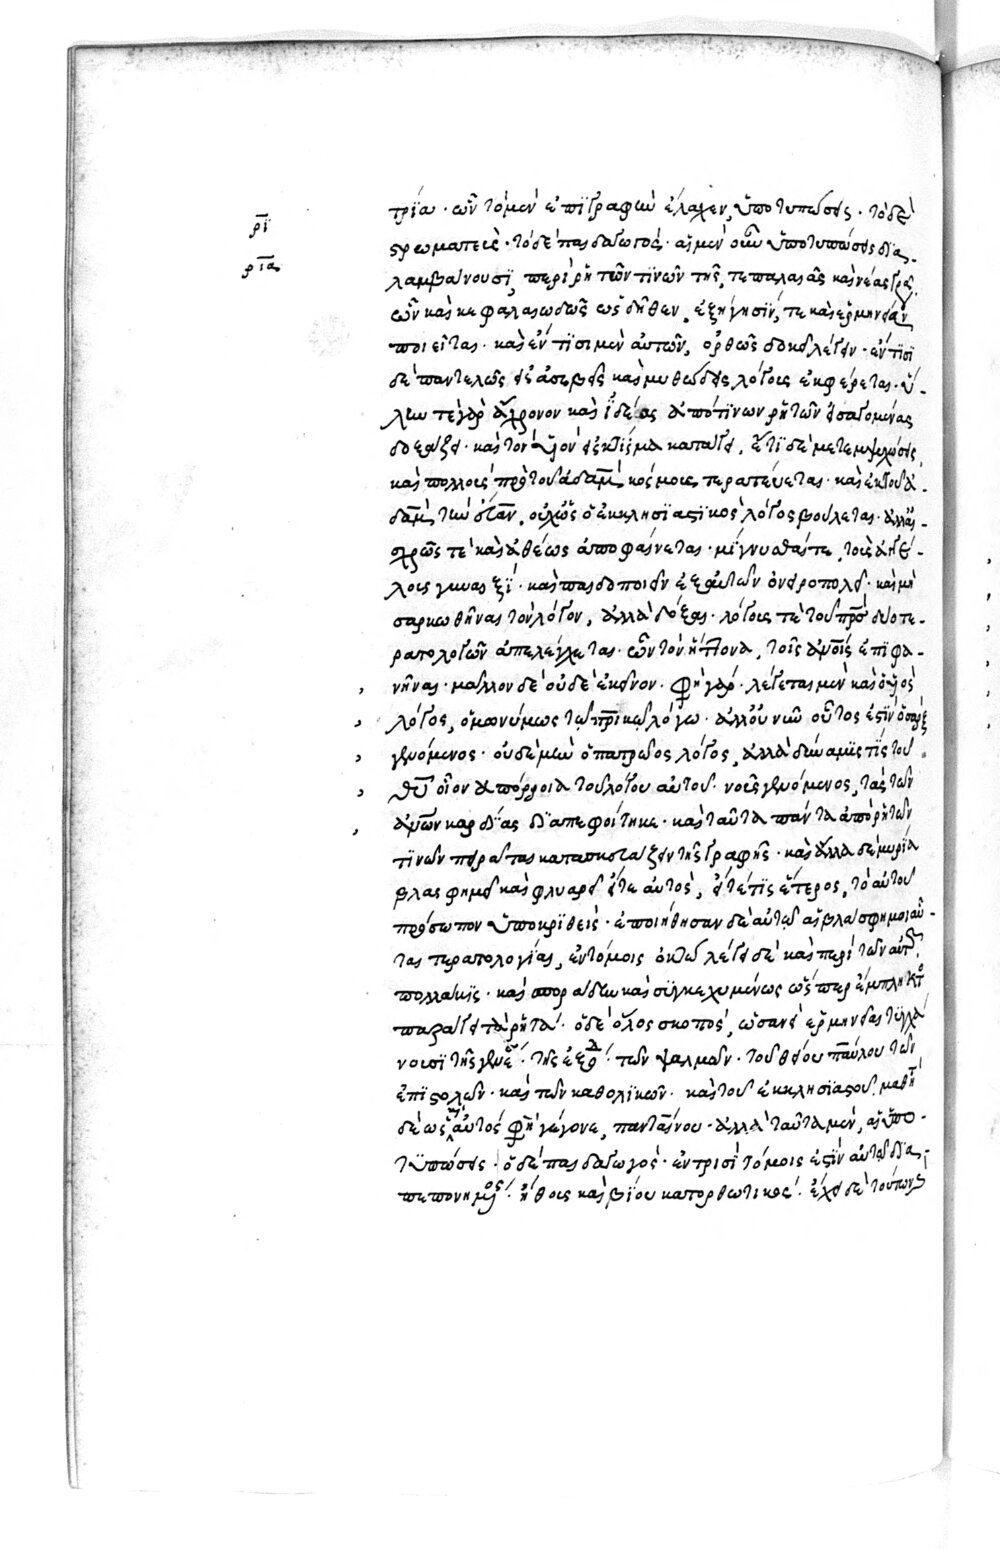 ρϊ
ρια
τρία· ὧν τὸ μὲν ἐπιγραφὴν ἔλαχεν, ὑποτυπώσεις· τὸ δὲ
στρωματεῖς· τὸ δὲ παιδαγωγός· αἱ μὲν οὖν ὑποτυπώσεις δια-
λαμβάνουσι, περὶ ῥητῶν τινῶν τῆς τε παλαιᾶς καὶ νέας γρα
ὧν καὶ κεφαλαιωδῶς ὡς δῆθεν, ἐξήγησίν, τε καὶ ἑρμηνείαν
ποιεῖται· καὶ ἔν τισι μὲν αὐτῶν, ὀρθῶς δοκεῖ λέγειν· ἔν τισι
δὲ παντελῶς εἰς ἀσεβεῖς καὶ μυθώδεις λόγους ἐκφέρεται· ὕ-
λην τε γὰρ ἄχρονον καὶ ἰδέας ἀπό τινων ῥητῶν εἰσαγομένας
δοξάζει· καὶ τὸν υἱὸν εἰς κτίσμα κατάγει, ἔτι δὲ μετεμψυχώσεις,
καὶ πολλοὺς πρὸ τοῦ ἀδὰμ κόσμους τερατεύεται· καὶ ἐκ τοῦ ἀ-
δὰμ τὴν εὔαν, οὐχ ὡς ὁ ἐκκλησιαστικὸς λόγος βούλεται· ἀλλ' αἰ-
σχρῶς τε καὶ ἀθέως ἀποφαίνεται· μίγνυσθαί τε, τοὺς ἀγγέ-
λους γυναιξί· καὶ παιδοποιεῖν ἐξ αὐτῶν ὀνειροπολεῖ· καὶ μὴ
σαρκωθῆναι τὸν λόγον, ἀλλὰ δόξαι· λόγους τὲ τοῦ πρσ δύο τε-
ρατολογῶν ἀπελέγχεται· ὧν τὸν ἥττονα, τοῖς ἀνοις ἐπιφα-
νῆναι· μᾶλλον δὲ οὐδὲ ἐκεῖνον· φησὶ γάρ· λέγεται μὲν καὶ ὁ υἱὸς
λόγος, ὁμωνύμως τῷ πρικῷ λόγῳ· ἀλλ' οὐ νῦν οὗτός ἐστιν ὁ σὰρξ
γενόμενος· οὐδὲ μὴν ὁ πατρῷος λόγος, ἀλλὰ δύναμίς τις τοῦ
θυ οἷον ἀπόρροια τοῦ λόγου αὐτοῦ· νοῦς γενόμενος, τὰς τῶν
ἀνων καρδίας διαπεφοίτηκε· καὶ ταῦτα πάντα ἀπὸ ῥητῶν
τινῶν πειρᾶται κατασκευάζειν τῆς γραφῆς· καὶ ἄλλα δὲ μυρία
βλασφημεῖ καὶ φλυαρεῖ εἴτε αὐτός, εἴτέ τις ἕτερος, τὸ αὐτοῦ
πρόσωπον ὑποκριθείς· ἐποιήθησαν δὲ αὐτῷ αἱ βλάσφημοι αὗ-
ται τερατολογίαι, ἐν τόμοις ὀκτὼ λέγει δὲ καὶ περὶ τῶν αὐτ
πολλάκις· καὶ σποράδην καὶ συγκεχυμένως ὥσπερ ἔμπληκτο
παράγει τὰ ῥητά· ὁ δὲ ὅλος σκοπός, ὡσανεὶ ἑρμηνεῖαι τυγχά
νουσι τῆς γενε· τῆς ἐξοδ· τῶν ψαλμῶν· τοῦ θείου παύλου τῶν
ἐπιστολῶν· καὶ τῶν καθολικῶν· καὶ τοῦ ἐκκλησιαστοῦ, μαθη
δὲ ὡς αὐτός φησι γέγονε, πανταίνου· ἀλλὰ ταῦτα μὲν, αἱ ὑπο-
τυπώσεις· ὁ δὲ παιδαγωγός· ἐν τρισὶ τόμοις ἐστὶν αὐτῷ δια-
πεπονημένος· ἤθους καὶ βίου κατορθωτικός· ἔχει δὲ τούτων